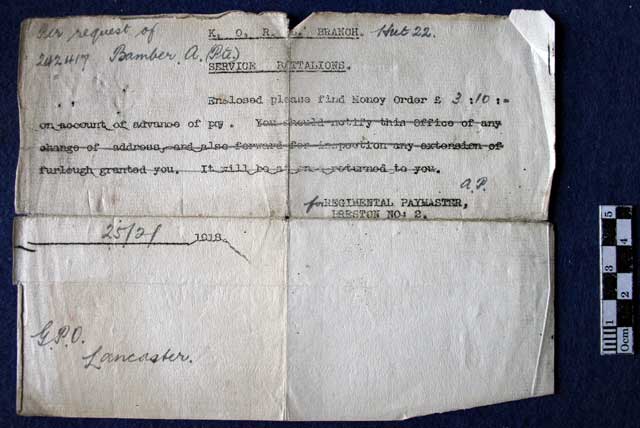 Per request of
K. O. R. L. BRANCH. Hut 22.
242417 Bamber, A. (Pte)
SERVICE BATTALIONS.
Enclosed please find Money Order £ 3 :10: -
on account of advance of pay. You should notify this Office of any
change of address, and also forward for inspection any extension of
furlough granted you. It will be at once returned to you.
A.P.
for REGIMENTAL PAYMASTER,
PRESTON NO: 2.
25/2/ 1918.
G.P.O.
Lancaster.
0cm 1 2 3 4 5